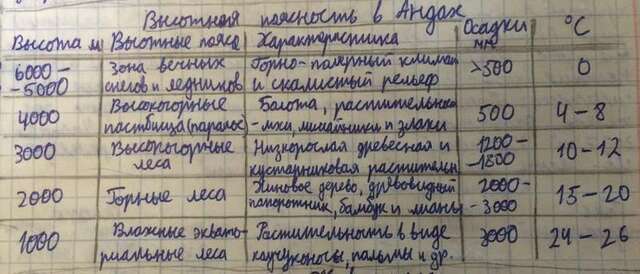 Высотная поясность в Андах
Высота м Высотные пояса Характеристика Осадки мм °C
6000 – Зона вечных Горно-полярный климат >500 0
– 5000 снегов и ледников и скалистый рельеф
4000 Высокогорные Болота, растительнос 500 4 – 8
пастбища (парамос) – мхи, лишайники и злаки
3000 Высокогорные Низкорослая древесная и 1200 – 10 – 12
леса кустарниковая растительн – 1800
2000 Горные леса Хиновое дерево, древовидный 2000 – 15 – 20
папоротник, бамбук и лианы – 3000
1000 Влажные эквато- Растительность в виде 3000 24 – 26
риальные леса каучуконосы, пальмы и др.